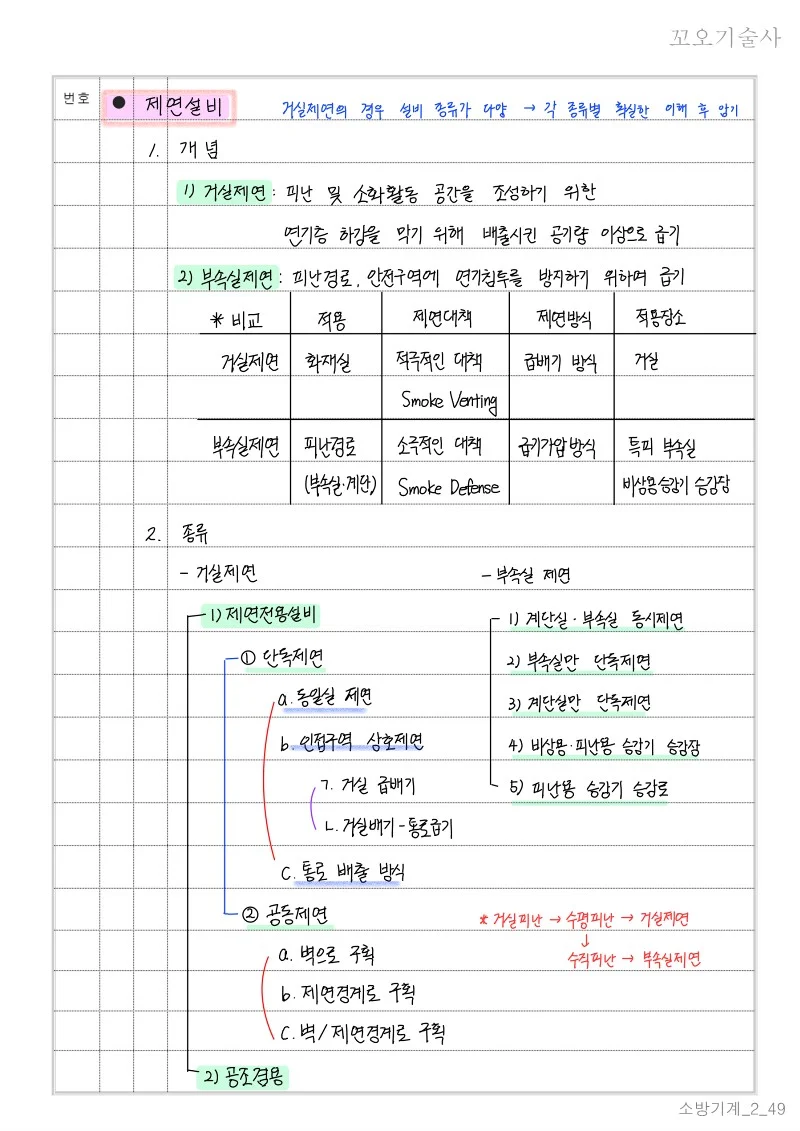 꼬오기술사
번호
● 제연설비
거실제연의 경우 설비 종류가 다양 → 각 종류별 확실한 이해 후 암기
1. 개념
1) 거실제연 : 피난 및 소화활동 공간을 조성하기 위한
연기층 하강을 막기 위해 배출시킨 공기량 이상으로 급기
2) 부속실제연 : 피난경로, 안전구역에 연기침투를 방지하기 위하여 급기
* 비교 적용 제연대책 제연방식 적용장소
거실제연 화재실 적극적인 대책 급배기 방식 거실
Smoke Venting
부속실제연 피난경로 소극적인 대책 급기가압방식 특피 부속실
(부속실·계단) Smoke Defense 비상용승강기 승강장
2. 종류
- 거실제연
1) 제연전용설비
① 단독제연
a. 동일실 제연
b. 인접구역 상호제연
ㄱ. 거실 급배기
ㄴ. 거실배기-통로급기
C. 통로 배출 방식
② 공동제연
a. 벽으로 구획
b. 제연경계로 구획
C. 벽/제연경계로 구획
2) 공조겸용
- 부속실 제연
1) 계단실·부속실 동시제연
2) 부속실만 단독제연
3) 계단실만 단독제연
4) 비상용·피난용 승강기 승강장
5) 피난용 승강기 승강로
* 거실피난 → 수평피난 → 거실제연
↓
수직피난 → 부속실제연
소방기계_2_49